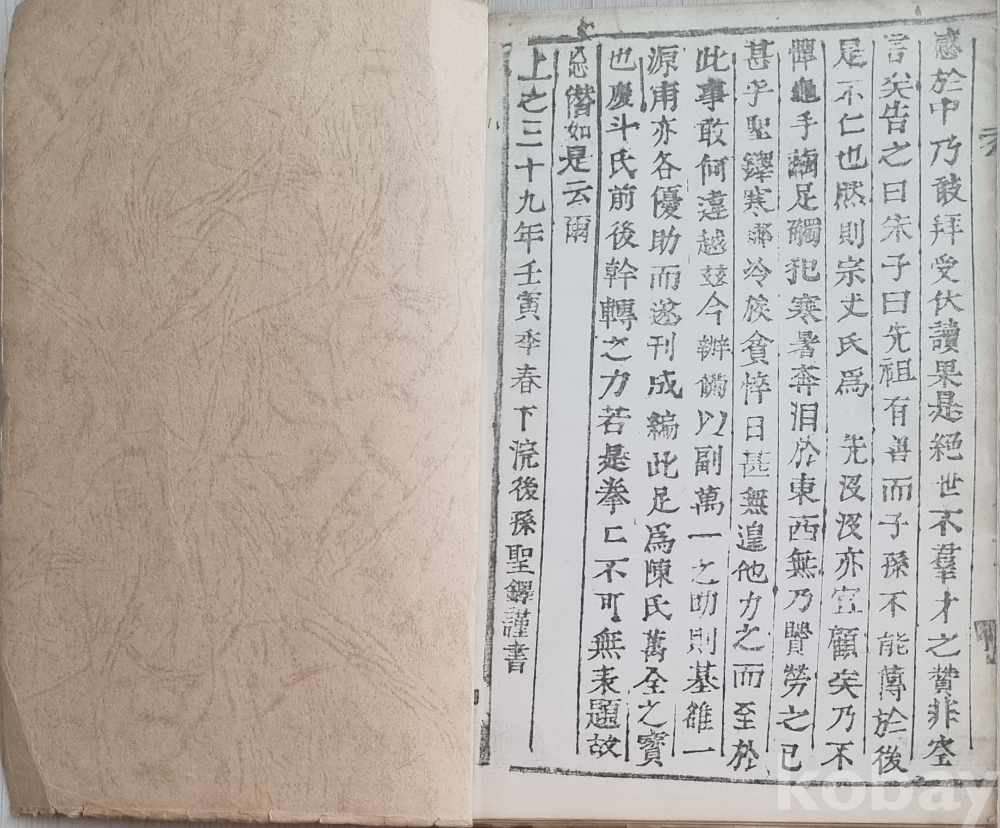 感於中乃敢拜受伏讀果是絕世不羣才之贊非空
言矣告之曰朱子曰先祖有善而子孫不能傳於後
是不仁也然則宗丈氏爲 先汲汲亦宜顧矣乃不
憚龜手繭足觸犯寒暑奔泪於東西無乃賢勞之已
甚乎聖鐸寒鄉冷族貧悴日甚無遑他力之而至於
此事敢何違越玆今辦備以副萬一之助則基雒一
源甫亦各優助而遂刊成編此足爲陳氏萬全之寶
也慶斗氏前後幹轉之力若是拳〻不可無表題故
忘僭如是云爾
上之三十九年壬寅季春下浣後孫聖鐸謹書
kobay